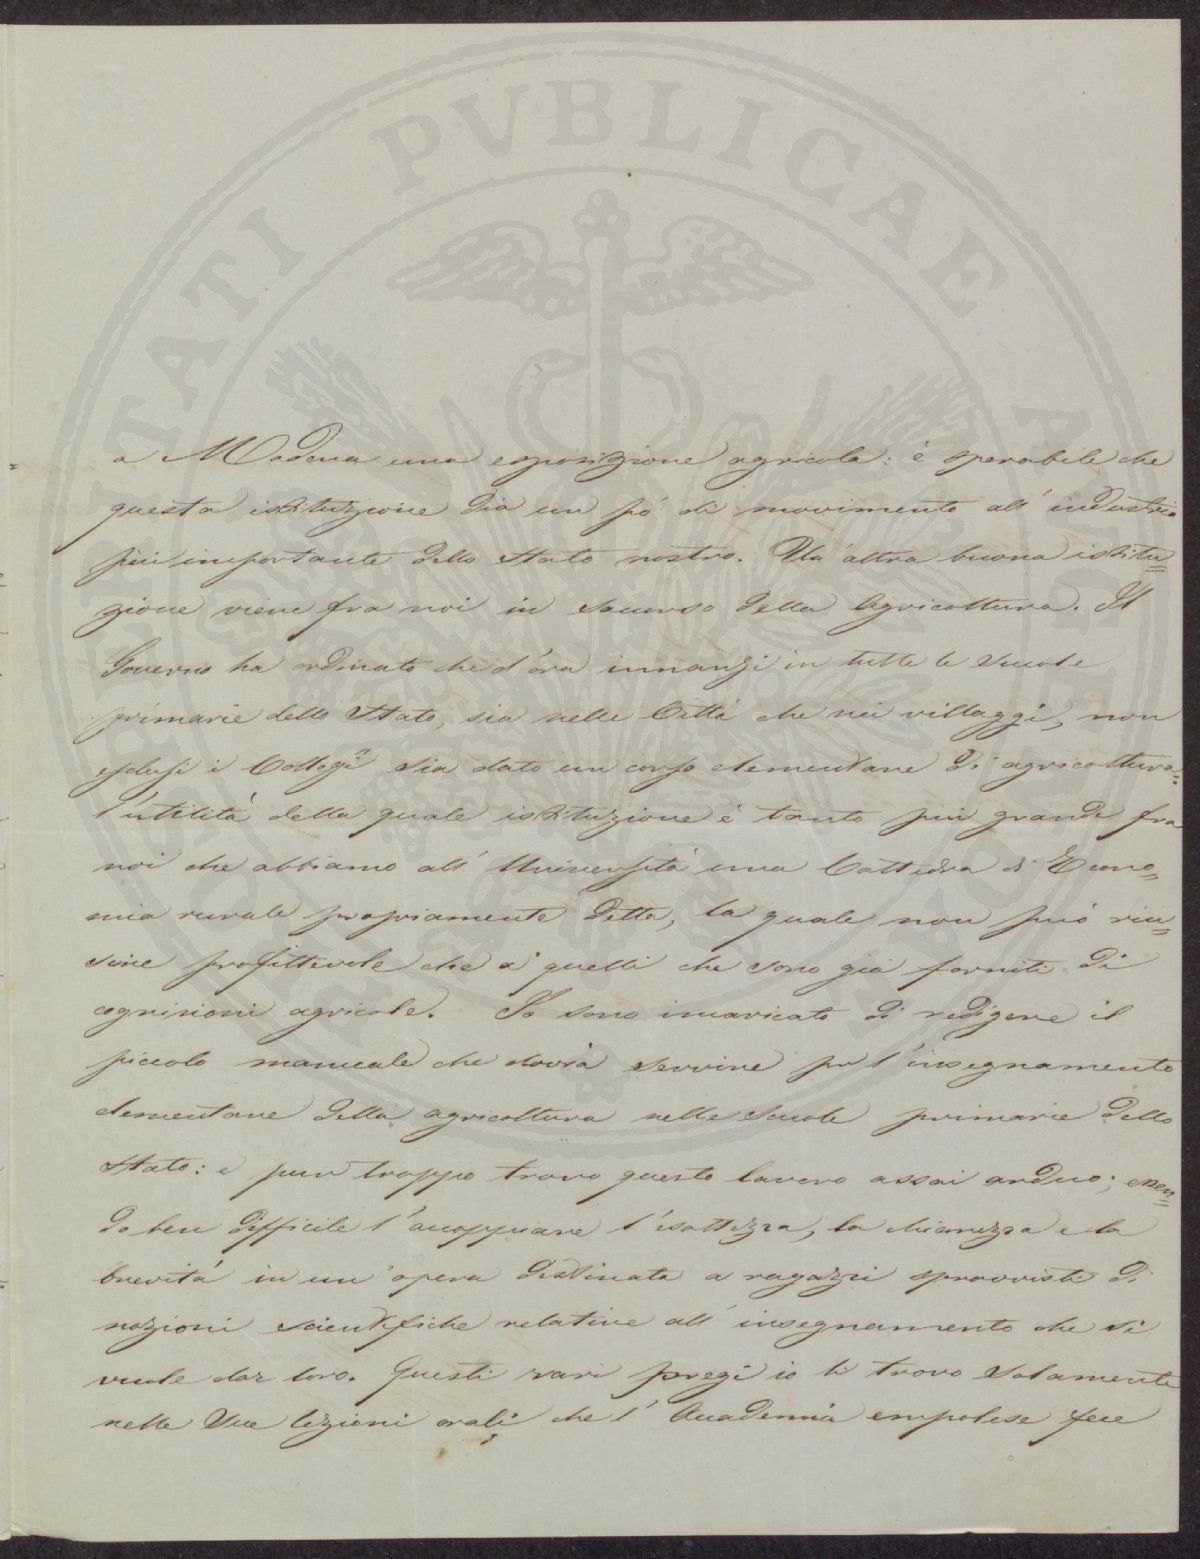 a Modena una esposizione agricola: è sperabile che
questa istituzione dia un pó di movimento all' industria
più importante dello Stato nostro. Un' altra buona istitu=
zione viene fra noi in soccorso della Agricoltura. Il
Governo ha ordinato che d'ora innanzi in tutte le scuole
primarie dello Stato, sia nelle Città che nei villaggi, non
esclusi i Collegi sia dato un corso elementare di agricoltura:
l'utilità della quale istituzione è tanto più grande fra
noi che abbiamo all' Università una Cattedra di Econo=
mia rurale propriamente detta, la quale non può riu=
scire profittevole che a' quelli che sono già forniti di
cognizioni agricole. Io sono incaricato di redigere il
piccolo manuale che dovrà servire per l'insegnamento
elementare della agricoltura nelle scuole primarie dello
Stato: e pur troppo trovo questo lavoro assai arduo; essen=
do ben difficile l'accoppiare l'esattezza, la chiarezza e la
brevità in un' opera destinata a ragazzi sprovvisti di
nozioni scientifiche relative all' insegnamento che si
vuole dar loro. Questi rari pregi io li trovo solamente
nelle Sue lezioni orali che l' Accademia empolese fece